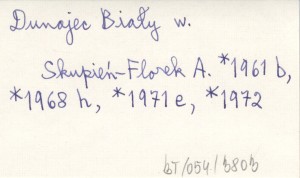 Dunajec Biały w.
Skupień-Florek A. *1961 b,
*1968 h, *1971 e, *1972
bT/054/3803